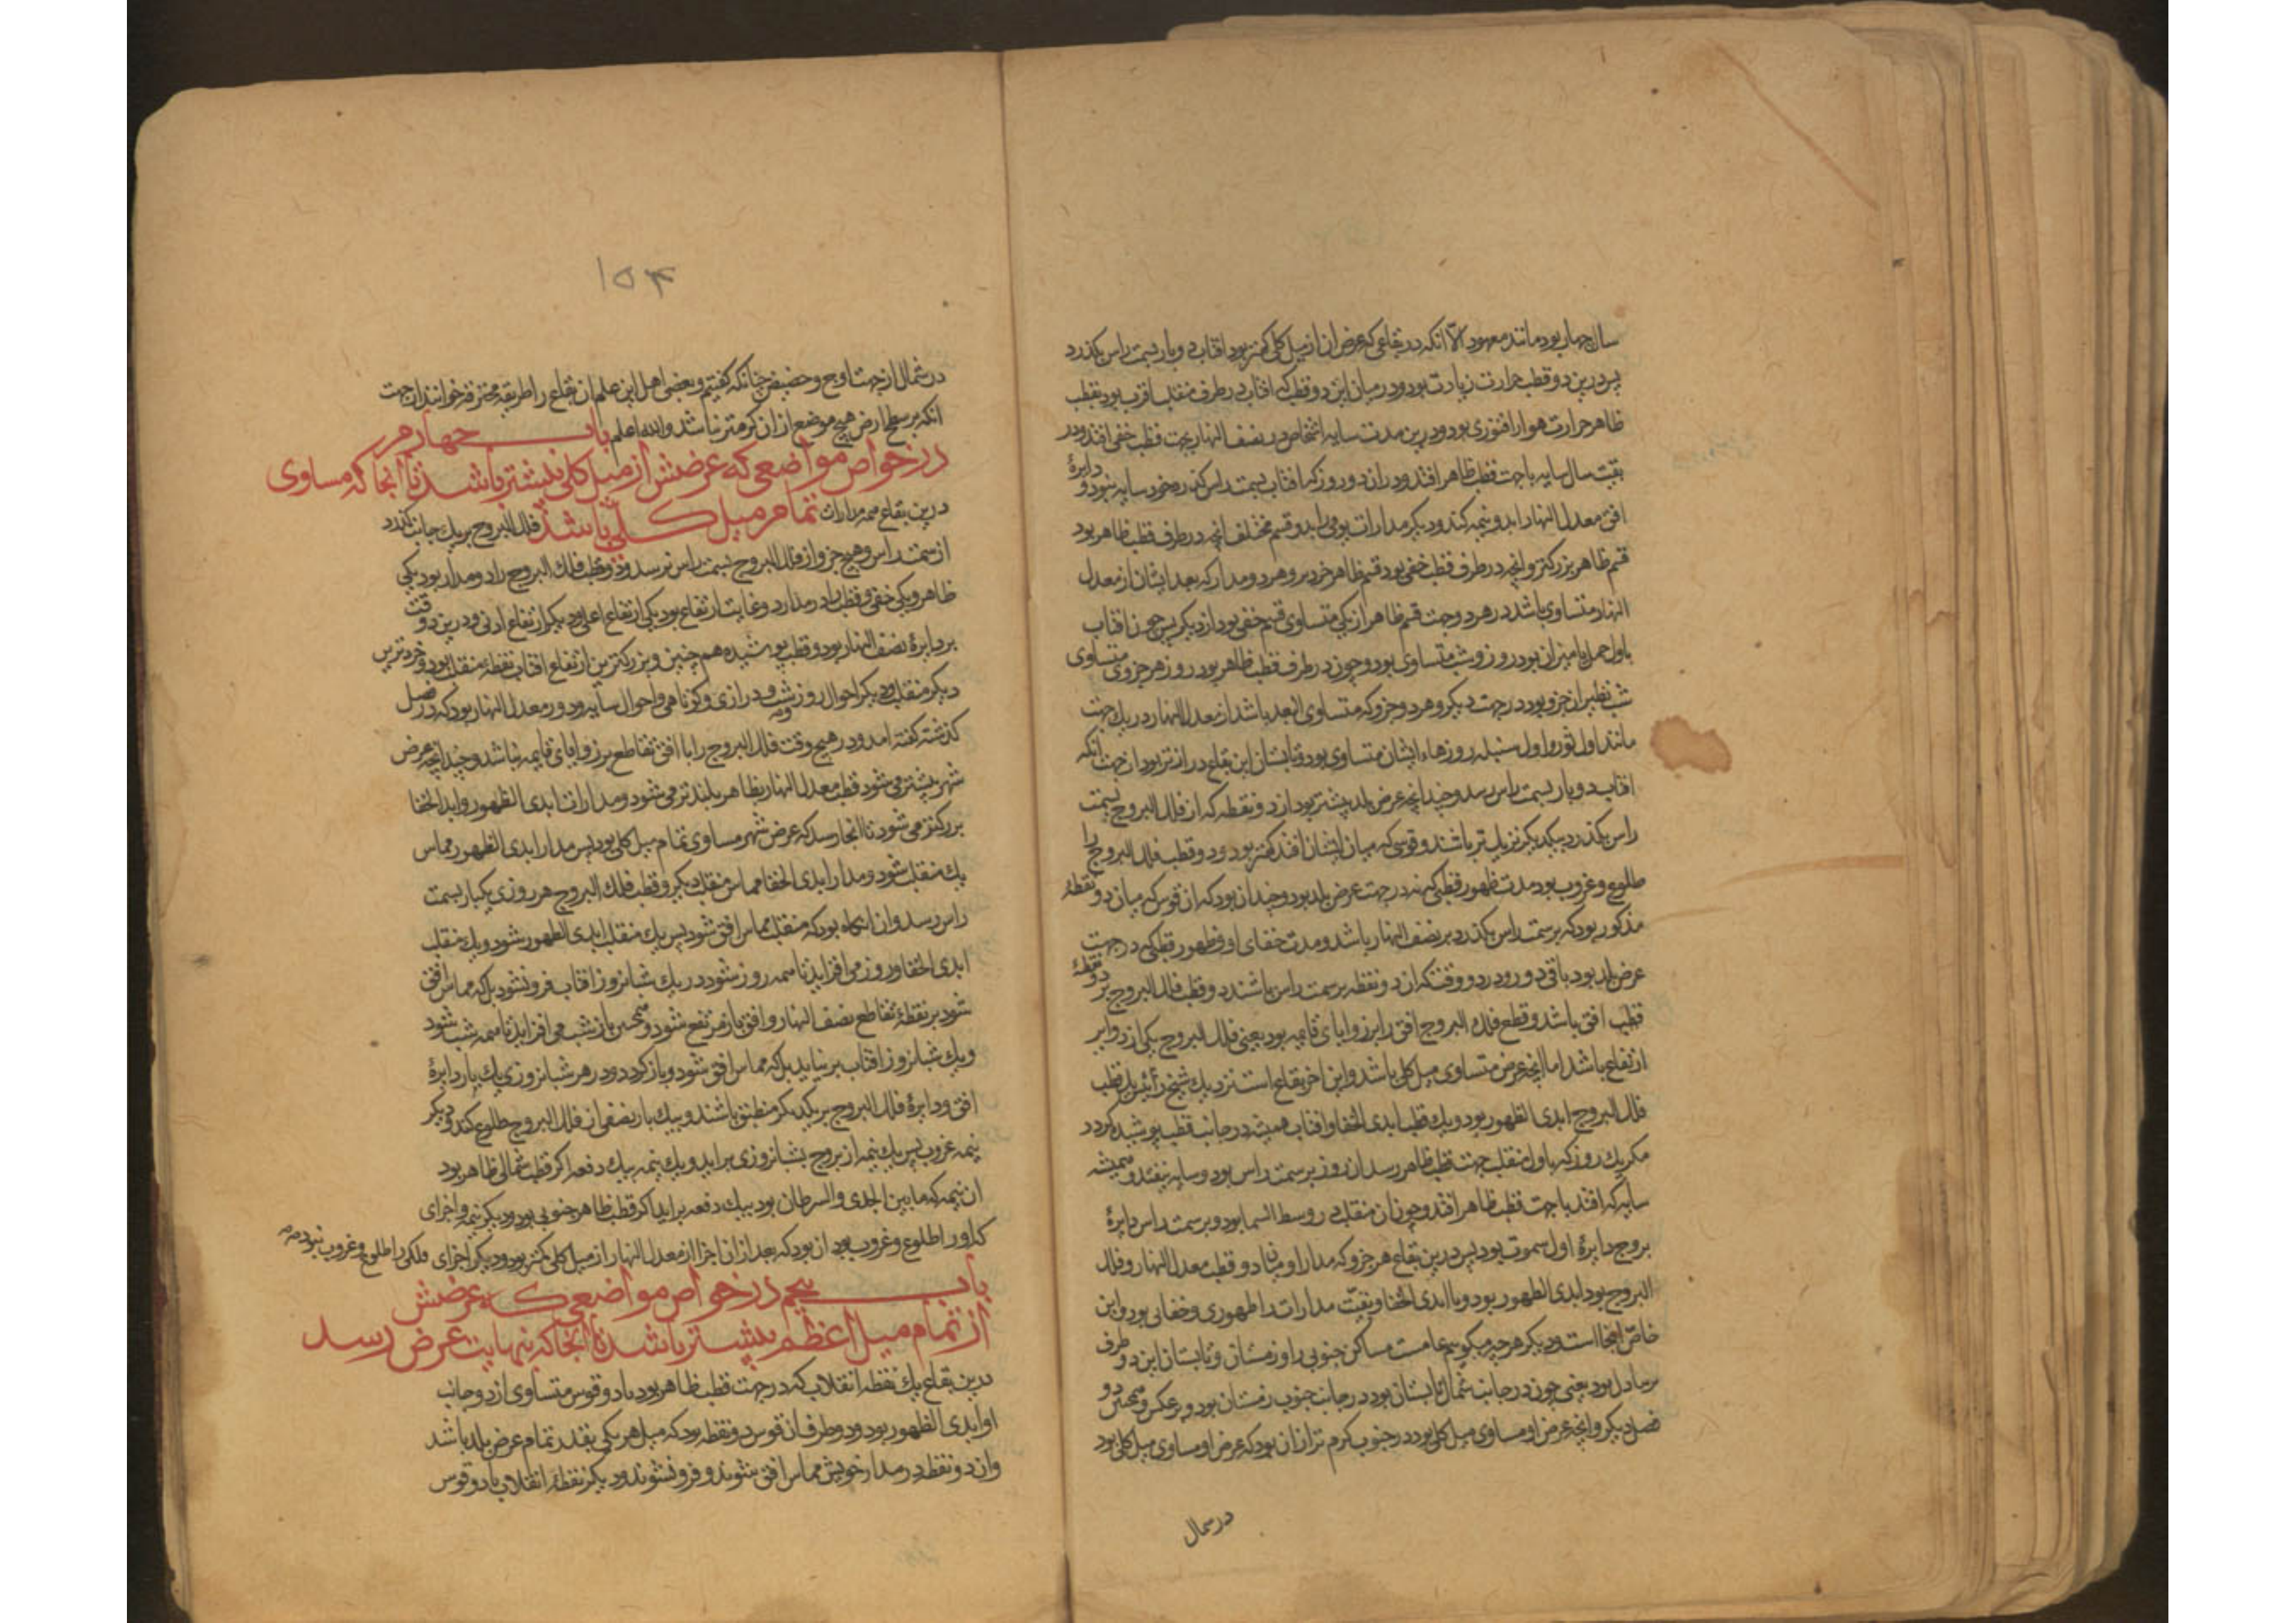 سال چهار بود مانند معهود الا آنکه در بقاعی که عرض آن از میل کلی کمتر بود افتاب دو بار بسمت راس بکذرد
پس درین دو قطب حرارت زیادت بود و در میان این دو قطب که افتاب در طرف منقلب اقرب بود بقطب
ظاهر حرارت هوا را فتوری بود و درین مدت سایه اشخاص در نصف النهار بجهت قطب خفی افتد و در
بقیت سال سایه با جهت قطب ظاهر افتد و در ان دو روز که افتاب بسمت راس کذرد خود سایه نبود و دایرهٔ
افق معدل النهار را بدو نیمه کند و دیکر مدارات یومی را بدو قسم مختلف انچه در طرف قطب ظاهر بود
قسم ظاهر بزرکتر و انچه در طرف قطب خفی بود قسم ظاهر خردتر و هر دو مدار که بعد ایشان از معدل
النهار متساوی باشد در هر دو جهت قسم ظاهر از یکی متساوی قسم خفی بود از دیکر پس چون افتاب
باول حمل یا میزان بود روز و شب متساوی بود و چون در طرف قطب ظاهر بود روز هر جزوی متساوی
شب نظیر ان جزو بود در جهت دیکر و هر دو جزو که متساوی البعد باشد از معدل النهار در یک جهت
مانند اول ثور و اول سنبله روزهاء ایشان متساوی بود و تابستان این بقاع درازتر بود از جهت انکه
افتاب دو بار بسمت راس رسد و چندانچه عرض بلد بیشتر بود ان دو نقطه که از فلک البروج بسمت
راس بکذرد بیکدیکر نزدیکتر باشند و قوسی که میان ایشان افتد کمتر بود و دو قطب فلک البروج را
طلوع و غروب بود مدت ظهور قطبی که نه در جهت عرض بلد بود چندان بود که ان قوس که میان دو نقطهٔ
مذکور بود که بر سمت راس بکذرد بر نصف النهار باشد و مدت خفای او و ظهور قطبی که در جهت
عرض بلد بود باقی دور و در دو وقت که ان دو نقطه بر سمت راس باشند دو قطب فلک البروج بر دو نقطهٔ
قطب افق باشد و قطع فلک البروج افق را بر زوایای قایمه بود یعنی فلک البروج یکی از دوایر
ارتفاع باشد اما انچه عرض متساوی میل کلی باشد و این اخر بقاع است نزدیک شیخ رئیس یک قطب
فلک البروج ابدی الظهور بود و یک قطب ابدی الخفا و افتاب همیشه در جانب قطب پوشیده کردد
مکر یک روز که باول منقلب جهت قطب ظاهر رسد ان روز بر سمت راس بود و سایه نیفتد و همیشه
سایه که افتد با جهت قطب ظاهر افتد و چون ان منقلب در وسط السما بود و بر سمت راس دایرهٔ
بروج دایرهٔ اول سموت بود پس درین بقاع هر جزو که مدار او میان دو قطب معدل النهار و فلک
البروج بود ابدی الظهور بود و یا ابدی الخفا و بقیت مدارات را ظهوری و خفایی بود و این
خاص انجا است و دیکر هر چه میکویم عامست مساکن جنوبی را و زمستان و تابستان این دو طرف
بر مبادل بود یعنی چون در جانب شمال تابستان بود در جانب جنوب زمستان بود و بر عکس و همچنین دو
فصل دیکر و انچه عرض او مساوی میل کلی بود در جنوب کرم تر از ان بود که عرض او مساوی میل کلی بود
در شمال
۱۵۴
در شمال از جهت اوج و حضیض چنانکه کفتیم و بعضی اهل این علم ان بقاع را طریقه محترقه خوانند از جهت
انکه بر سطح ارض هیچ موضع از ان کرمتر نباشد والله اعلم باب چهارم
در خواص مواضعی که عرضش از میل کلی بیشتر باشد تا انجا که مساوی
تمام میل کلی باشد درین بقاع همه مدارات فلک البروج بر یک جانب کذرد
از سمت راس و هیچ جزو از فلک البروج بسمت راس نرسد و دو قطب فلک البروج را دو مدار بود یکی
ظاهر و یکی خفی و قطب را در مدار دو غایت ارتفاع بود یکی ارتفاع اعلی و دیکر ارتفاع ادنی و درین دو وقت
بر دایرهٔ نصف النهار بود و قطب پوشیده هم چنین و بزرکترین ارتفاع افتاب نقطهٔ منقلب بود و خردترین
دیکر منقلب و دیکر احوال روز و شب و درازی و کوتاهی و احوال سایه و دور معدل النهار بود که در فصل
کذشته کفته امد و در هیچ وقت فلک البروج را با افق تقاطع بر زوایای قایمه نباشد و چندانچه عرض
شهر بیشتر می شود قطب معدل النهار ظاهر بلندتر می شود و مدارات ابدی الظهور و ابدی الخفا
بزرکتر می شود تا انجا رسد که عرض شهر مساوی تمام میل کلی بود پس مدار ابدی الظهور مماس
یک منقلب شود و مدار ابدی الخفا مماس منقلب دیکر و قطب فلک البروج هر روزی یکبار بسمت
راس رسد و ان انکاه بود که منقلب مماس افق شود پس یک منقلب ابدی الظهور شود و یک منقلب
ابدی الخفا و روز می افزاید تا همه روز شود در یک شبانروز افتاب فرو نشود بل که مماس افق
شود بر نقطهٔ تقاطع نصف النهار و افق باز مرتفع شود و همچنین باز شب می افزاید تا همه شب شود
و یک شبانروز افتاب بر نیاید بل که مماس افق شود و باز کردد و در هر شبانروزی یک بار دایرهٔ
افق و دایرهٔ فلک البروج بر یکدیکر منطبق باشند و بیک بار نصفی از فلک البروج طلوع کند و دیکر
نیمه غروب پس یک نیمه از بروج بشبانروزی براید و یک نیمه بیک دفعه اکر قطب شمالی ظاهر بود
ان نیمه که مابین الجدی والسرطان بود بیک دفعه براید اکر قطب ظاهر جنوبی بود و دیکر نیمه و اجزای
که او را طلوع و غروب بود ان بود که بعد ازان اجزا از معدل النهار از میل کلی کمتر بود و دیکر اجزای فلکی را طلوع و غروب نبود
باب پنجم در خواص مواضعی که عرضش
از تمام میل اعظم بیشتر باشد تا انجا که بنهایت عرض رسد
درین بقاع یک نقطه انقلاب که در جهت قطب ظاهر بود با دو قوس متساوی از دو جانب
او ابدی الظهور بود و دو طرف ان قوس دو نقطه بود که میل هر یکی بقدر تمام عرض بلد باشد
وان دو نقطه در مدار خویش مماس افق شوند و فرو نشوند و دیکر نقطهٔ انقلاب با دو قوس